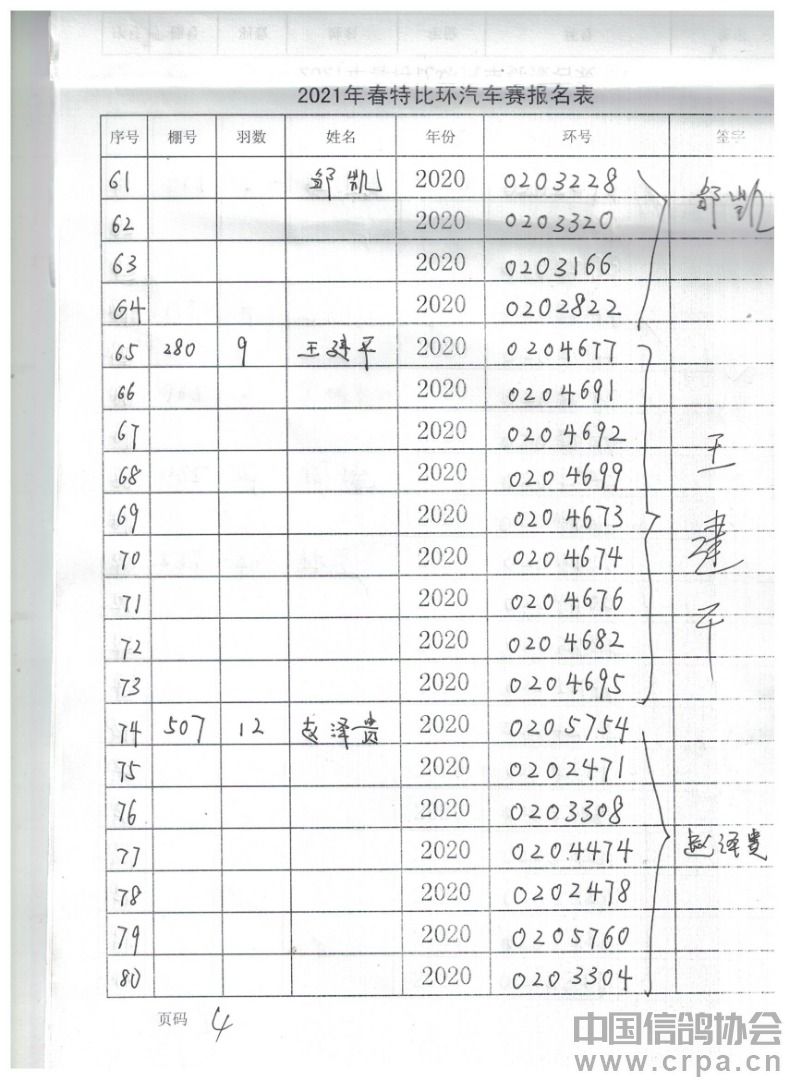 2021年春特比环汽车赛报名表
序号 棚号 羽数 姓名 年份 环号 签字
61 邹凯 2020 0203228 邹凯
62 2020 0203320
63 2020 0203166
64 2020 0202822
65 280 9 王建平 2020 0204677
66 2020 0204691
67 2020 0204692
68 2020 0204699 王建平
69 2020 0204673
70 2020 0204674
71 2020 0204676
72 2020 0204682
73 2020 0204695
74 507 12 赵泽贵 2020 0205754
75 2020 0202471
76 2020 0203308
77 2020 0204474 赵泽贵
78 2020 0202478
79 2020 0205760
80 2020 0203304
页码 4
中国信鸽协会
www.crpa.cn